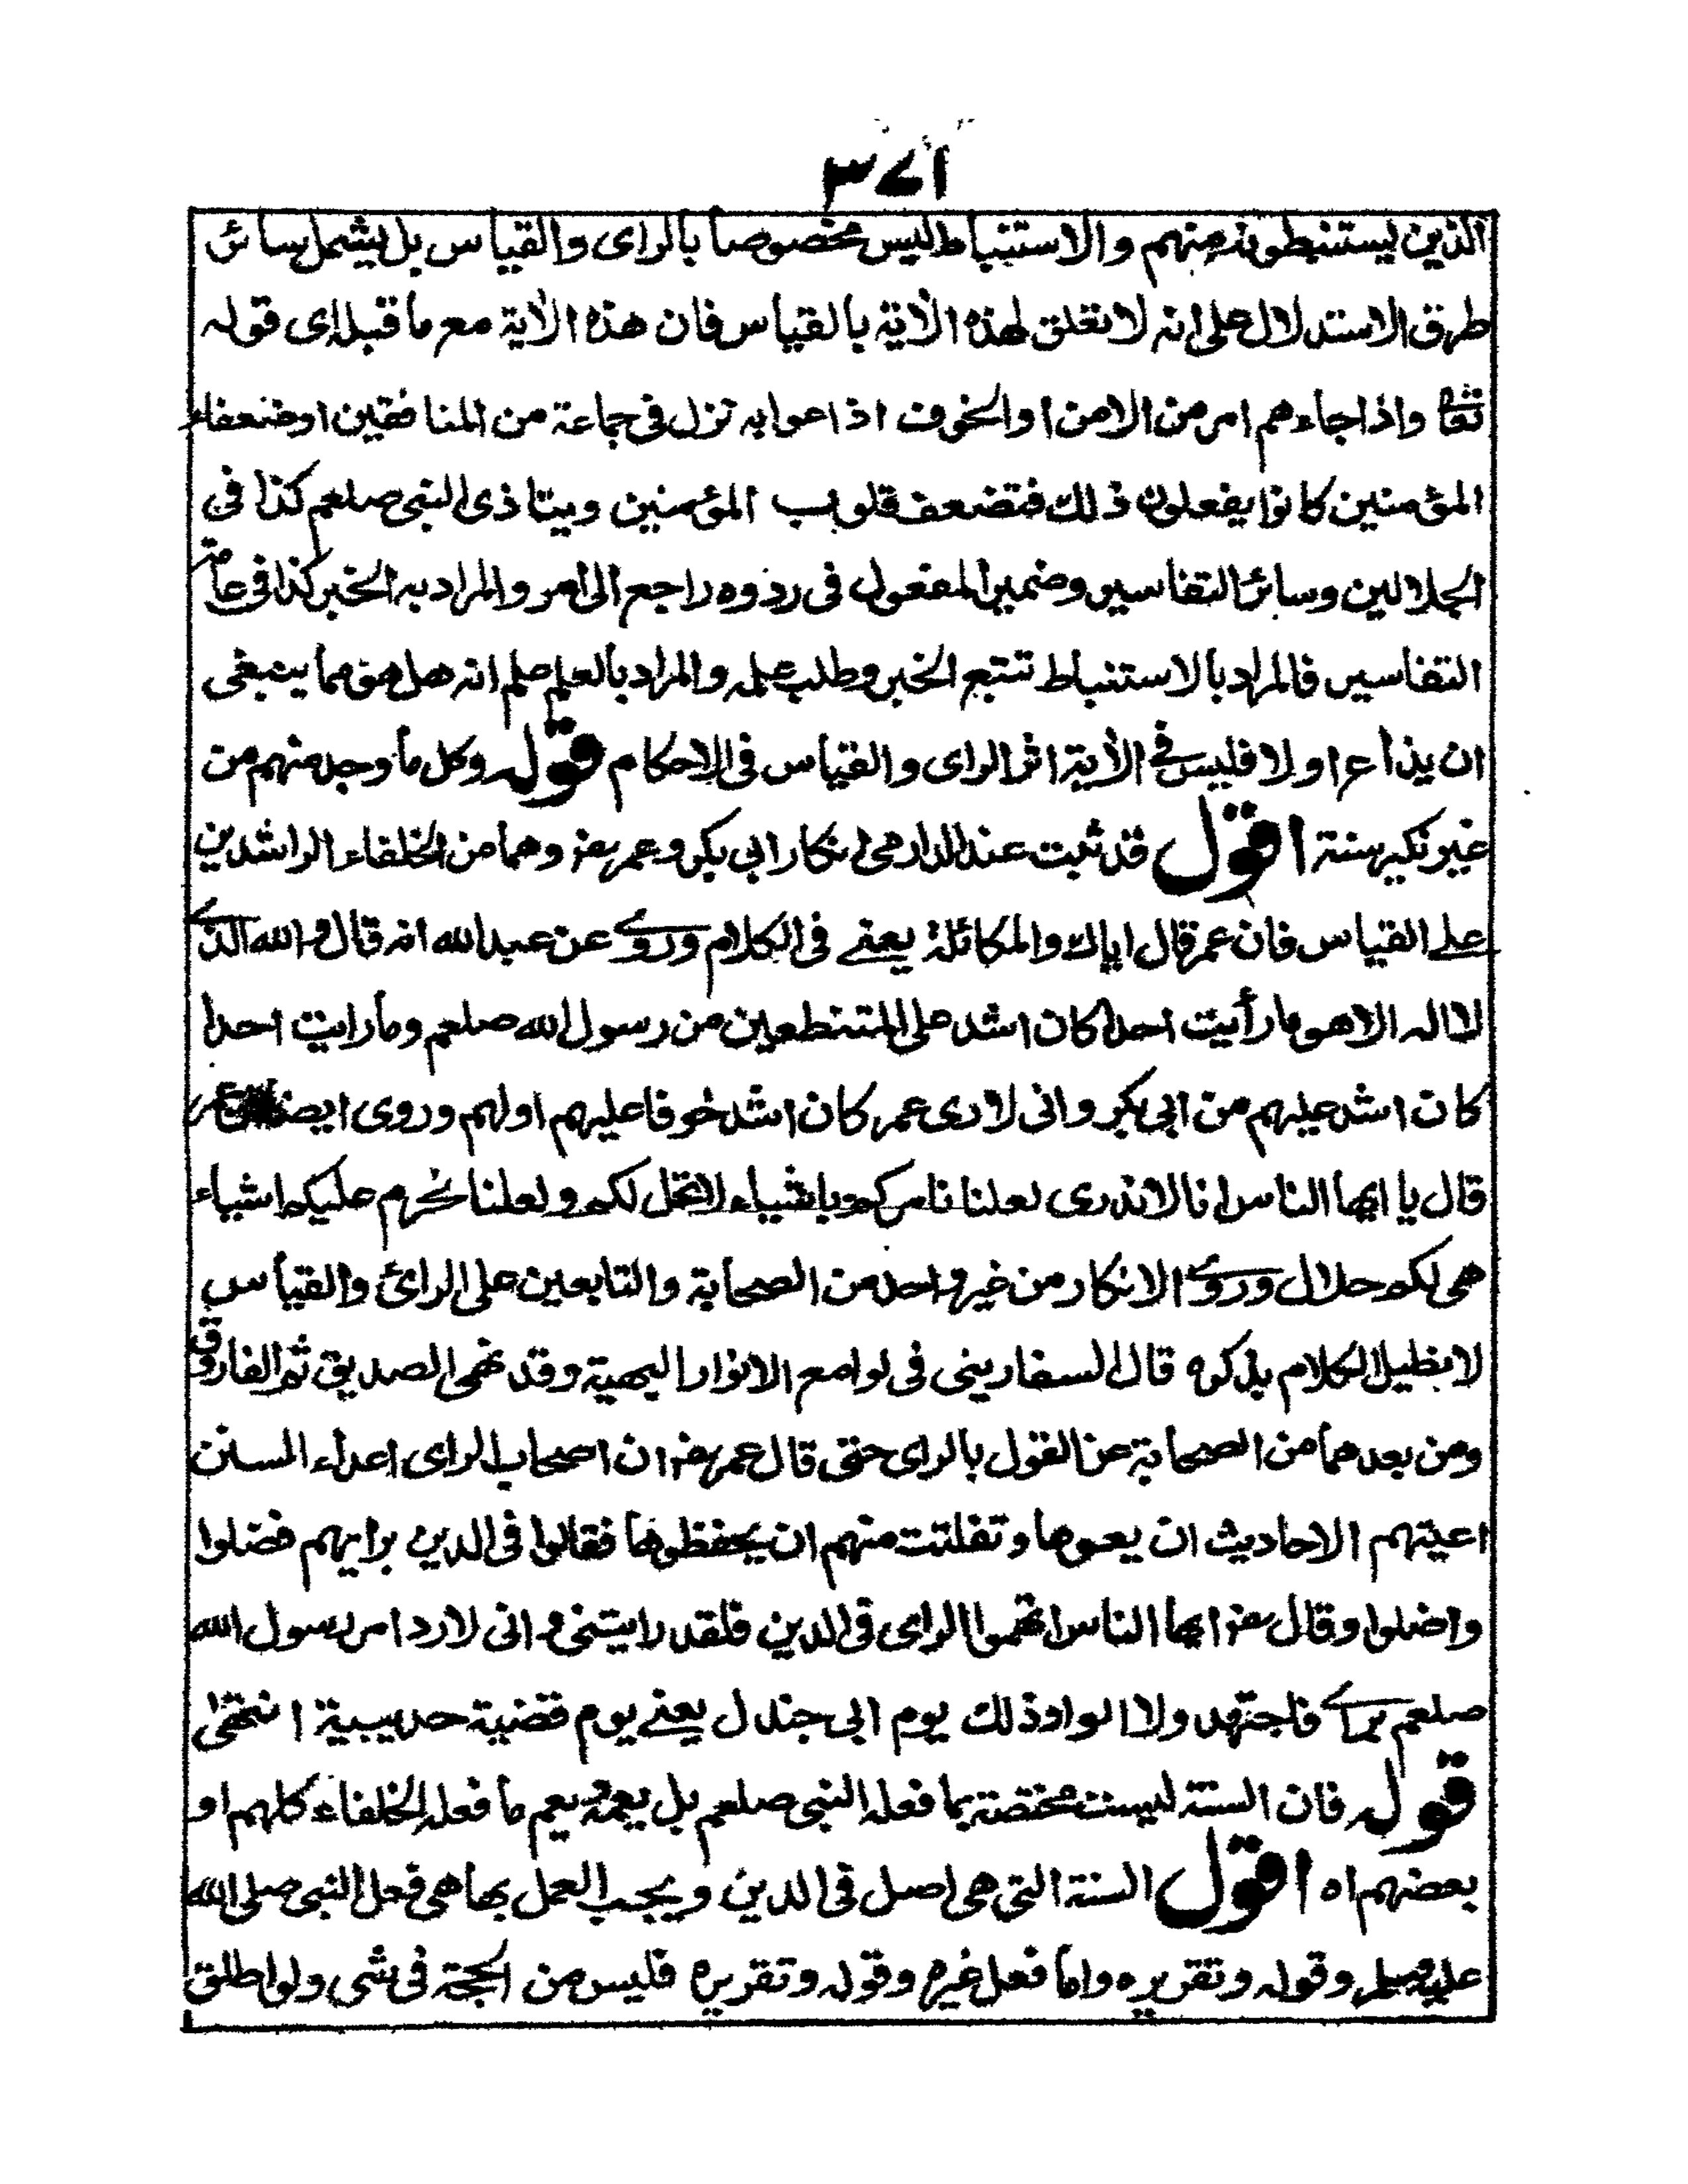 ٣٧١
الذين يستنبطونه منهم والاستنباط ليس مخصوصا بالراى والقياس بل يشمل سائر
طرق الاستدلال على انه لا تعلق لهذه الاٰية بالقياس فان هذه الاٰية مع ما قبله اى قوله
تعالى واذا جاءهم امر من الامن او الخوف اذاعوا به نزل فى جماعة من المنافقين او ضعفاء
المؤمنين كانوا يفعلون ذلك فتضعف قلوب المؤمنين ويتاذى النبى صلعم كذا فى
الجلالين وسائر التفاسير وضمير المفعول فى ردوه راجع الى الامر والمراد به الخبر كذا فى عامة
التفاسير فالمراد بالاستنباط تتبع الخبر وطلب علمه والمراد بالعلم علم انه هل هو مما ينبغى
ان يذاع اولا فليس فى الاٰية اثر الراى والقياس فى الاحكام قوله وكل ما وجد منهم من
غير نكير سنة اقول قد ثبت عند الدارمى انكار ابى بكر وعمر رضه وهما من الخلفاء الراشدين
على القياس فان عمر قال اياك والمكائلة يعنے فى الكلام وروے عن عبد الله انه قال والله الذے
لا اله الا هو ما رأيت احدا كان اشد على المتنطعين من رسول الله صلعم وما رايت احدا
كان اشد عليهم من ابى بكر وانى لارى عمر كان اشد خوفا عليهم اولهم وروى ايضا عمر
قال يا ايها الناس انا لا ندرى لعلنا نامركم باشياء لا تحل لكم ولعلنا نحرم عليكم اشياء
هى لكم حلال وروے الانكار من غير واحد من الصحابة والتابعين على الرائ والقياس
لا نطيل الكلام بذكره قال السفارينى فى لوامع الانوار البهية وقد نهى الصديق ثم الفاروق
ومن بعدهما من الصحابة عن القول بالراى حتى قال عمر رضه ان اصحاب الراى اعداء السنن
اعيتهم الاحاديث ان يعوها وتفلتت منهم ان يحفظوها فقالوا فى الدين برايهم فضلوا
واضلوا وقال رضه ايها الناس اتهموا الراى فى الدين فلقد رايتنى وانى لارد امر رسول الله
صلعم براے فاجتهد ولا الوا وذلك يوم ابى جندل يعنے يوم قضية حديبية انتهى
قوله فان السنة ليست مختصة بما فعله النبى صلعم بل يعمه ويعم ما فعله الخلفاء كلهم او
بعضهم اه اقول السنة التى هى اصل فى الدين ويجب العمل بها هى فعل النبى صلى الله
عليه وسلم وقوله وتقريره واما فعل غيره وقوله وتقريره فليس من الحجة فى شى ولو اطلق